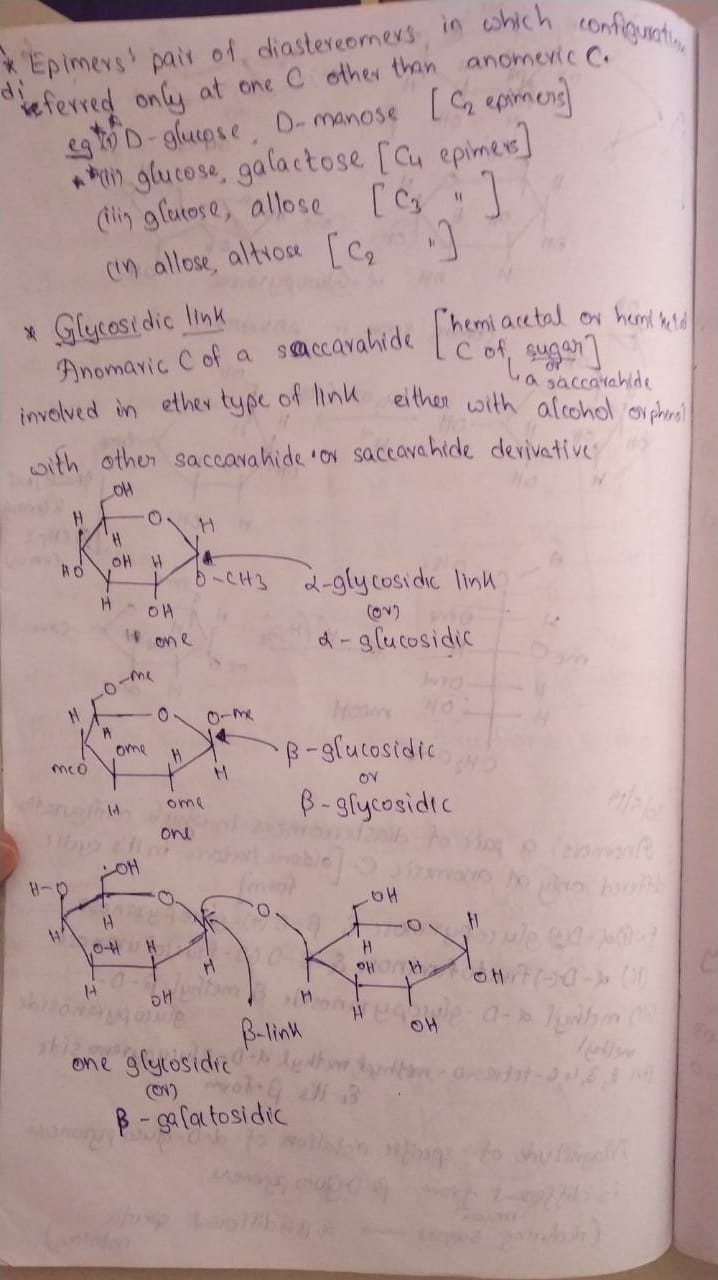 * 'Epimers' pair of diastereomers in which configuration
differred only at one C other than anomeric C.
eg (i) D-glucose, D-manose [C2 epimers]
(ii) glucose, galactose [C4 epimers]
(iii) glucose, allose [C3 "]
(iv) allose, altrose [C2 "]
* Glycosidic link
Anomaric C of a saccarahide [hemiacetal or hemi ketal
C of sugar]
or
a saccarahide
involved in ether type of link either with alcohol or phenol
with other saccarahide or saccarahide derivative
OH
H O H
H
HO OH H O-CH3 α-glycosidic link
H OH (or)
one α-glucosidic
O-me
H O O-me
H
ome H β-glucosidic
meo H or
H ome β-glycosidic
one
OH OH
H-O O O O H
H H
H O-H H H OH H OH
H OH H H OH
β-link
one glycosidic
(or)
β-galactosidic